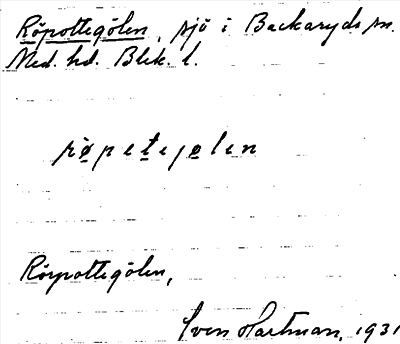 Röpottegölen, sjö i Backaryds sn.
Med. hd. Blek. l.
rø̀petejølen
Rörpottegölen,
Sven Hartman, 1931